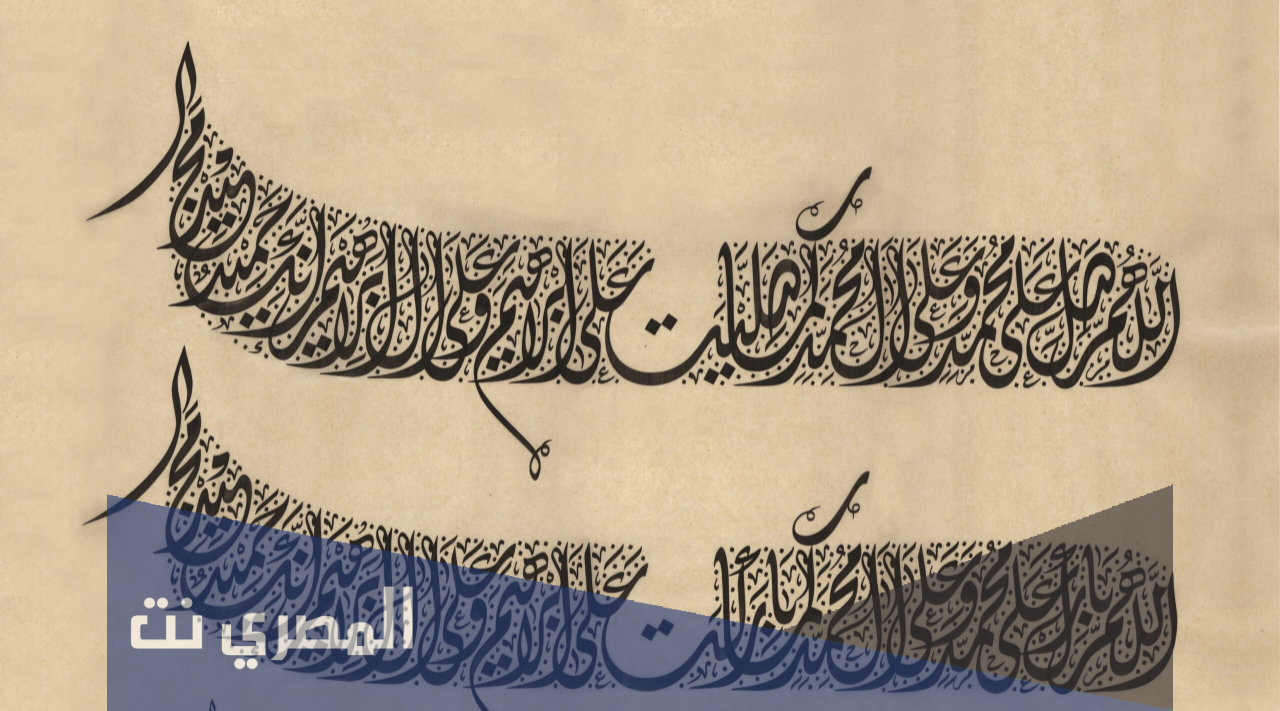 اللهم صل على محمد وعلى آل محمد كما صليت على إبراهيم وعلى آل إبراهيم إنك حميد مجيد
اللهم بارك على محمد وعلى آل محمد كما باركت على إبراهيم وعلى آل إبراهيم إنك حميد مجيد
المصري نت